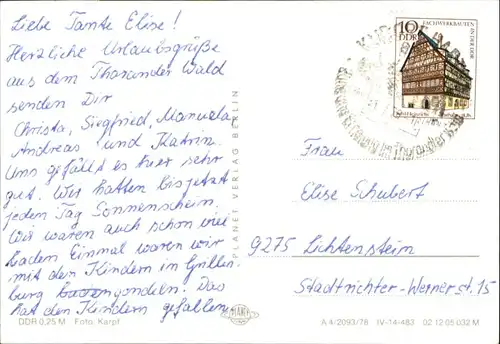 Liebe Tante Elise!
Herzliche Urlaubsgrüße
aus dem Tharandter Wald
senden Dir
Christa, Siegfried, Manuela
Andreas und Katrin.
Uns gefällt es hier sehr
gut. Wir hatten bis jetzt
jeden Tag Sonnenschein.
Wir waren auch schon viel
baden. Einmal waren wir
mit den Kindern in Grillen-
burg gondeln. Das
hat den Kindern gefallen.
DDR 0,25 M Foto: Karpf
PLANET VERLAG BERLIN
10
DDR
FACHWERKBAUTEN
IN DER DDR
Frau
Elise Schubert
9275 Lichtenstein
Stadtrichter-Werner str. 15
A 4/2093/78 IV-14-483 02 12 05 032 M